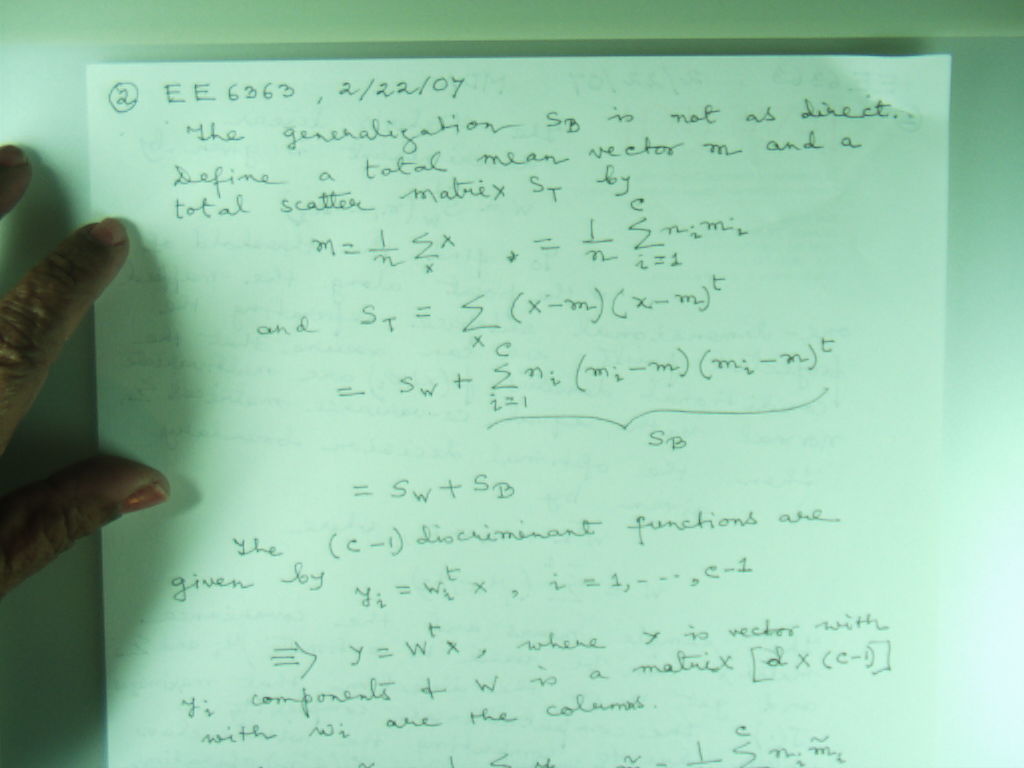 ② EE6363, 2/22/07
The generalization S_B is not as direct..
Define a total mean vector m and a
total scatter matrix S_T by
m = 1/n Σ_x x , = 1/n Σ_{i=1}^{c} n_i m_i
and S_T = Σ_x (x-m)(x-m)^t
= S_W + Σ_{i=1}^{c} n_i (m_i-m)(m_i-m)^t
S_B
= S_W + S_B
The (c-1) discriminant functions are
given by y_i = w_i^t x, i = 1,----, c-1
⇒ y = W^t x, where y is vector with
y_i components & W is a matrix [d x (c-1)]
with w_i are the columns.
1/n Σ^c n_i m̃_i